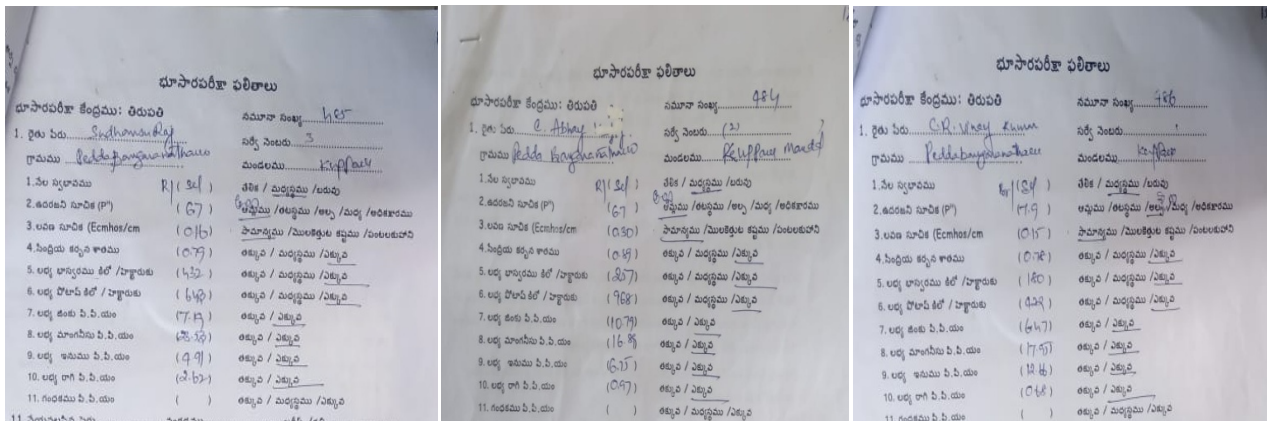 భూసారపరీక్షా ఫలితాలు
భూసారపరీక్షా కేంద్రము: తిరుపతి
నమూనా సంఖ్య 485
1. రైతు పేరు
సర్వే నెంబరు 3
గ్రామము
మండలము
1.నేల స్వభావము R/(Scl) తేలిక / మధ్యస్థము /బరువు
2.ఉదజని సూచిక (Pᴴ) (6.7) ఆమ్లము /తటస్థము /అల్ప /మధ్య /అధికక్షారము
3.లవణ సూచిక (Ecmhos/cm (0.16) సామాన్యము /మొలకెత్తుట కష్టము /పంటలకుహాని
4.సేంద్రియ కర్బన శాతము (0.79) తక్కువ / మధ్యస్థము /ఎక్కువ
5. లభ్య భాస్వరము కిలో /హెక్టారుకు (432) తక్కువ / మధ్యస్థము /ఎక్కువ
6. లభ్య పోటాష్ కిలో / హెక్టారుకు తక్కువ / మధ్యస్థము /ఎక్కువ
7. లభ్య జింకు పి.పి.యం తక్కువ / ఎక్కువ
8. లభ్య మాంగనీసు పి.పి.యం తక్కువ / ఎక్కువ
9. లభ్య ఇనుము పి.పి.యం (4.91) తక్కువ / ఎక్కువ
10. లభ్య రాగి పి.పి.యం (2.62) తక్కువ / ఎక్కువ
11. గంధకము పి.పి.యం ( ) తక్కువ / మధ్యస్థము /ఎక్కువ
భూసారపరీక్షా ఫలితాలు
భూసారపరీక్షా కేంద్రము: తిరుపతి
నమూనా సంఖ్య 484
1. రైతు పేరు C. Abhay
సర్వే నెంబరు (2)
గ్రామము Pedda
మండలము
1.నేల స్వభావము R/(Scl) తేలిక / మధ్యస్థము /బరువు
2.ఉదజని సూచిక (Pᴴ) (6.7) ఆమ్లము /తటస్థము /అల్ప /మధ్య /అధికక్షారము
3.లవణ సూచిక (Ecmhos/cm (0.30) సామాన్యము /మొలకెత్తుట కష్టము /పంటలకుహాని
4.సేంద్రియ కర్బన శాతము తక్కువ / మధ్యస్థము /ఎక్కువ
5. లభ్య భాస్వరము కిలో /హెక్టారుకు (257) తక్కువ / మధ్యస్థము /ఎక్కువ
6. లభ్య పోటాష్ కిలో / హెక్టారుకు (968) తక్కువ / మధ్యస్థము /ఎక్కువ
7. లభ్య జింకు పి.పి.యం (10.79) తక్కువ / ఎక్కువ
8. లభ్య మాంగనీసు పి.పి.యం తక్కువ / ఎక్కువ
9. లభ్య ఇనుము పి.పి.యం (6.75) తక్కువ / ఎక్కువ
10. లభ్య రాగి పి.పి.యం (0.97) తక్కువ / ఎక్కువ
11. గంధకము పి.పి.యం ( ) తక్కువ / మధ్యస్థము /ఎక్కువ
భూసారపరీక్షా ఫలితాలు
భూసారపరీక్షా కేంద్రము: తిరుపతి
నమూనా సంఖ్య 486
1. రైతు పేరు C.R. Vinay Kumar
సర్వే నెంబరు
గ్రామము
మండలము
1.నేల స్వభావము తేలిక / మధ్యస్థము /బరువు
2.ఉదజని సూచిక (Pᴴ) (7.9) ఆమ్లము /తటస్థము /అల్ప /మధ్య /అధికక్షారము
3.లవణ సూచిక (Ecmhos/cm (0.15) సామాన్యము /మొలకెత్తుట కష్టము /పంటలకుహాని
4.సేంద్రియ కర్బన శాతము (0.78) తక్కువ / మధ్యస్థము /ఎక్కువ
5. లభ్య భాస్వరము కిలో /హెక్టారుకు (180) తక్కువ / మధ్యస్థము /ఎక్కువ
6. లభ్య పోటాష్ కిలో / హెక్టారుకు (422) తక్కువ / మధ్యస్థము /ఎక్కువ
7. లభ్య జింకు పి.పి.యం (6.47) తక్కువ / ఎక్కువ
8. లభ్య మాంగనీసు పి.పి.యం (17.95) తక్కువ / ఎక్కువ
9. లభ్య ఇనుము పి.పి.యం తక్కువ / ఎక్కువ
10. లభ్య రాగి పి.పి.యం (0.68) తక్కువ / ఎక్కువ
11. గంధకము పి.పి.యం ( ) తక్కువ / మధ్యస్థము /ఎక్కువ